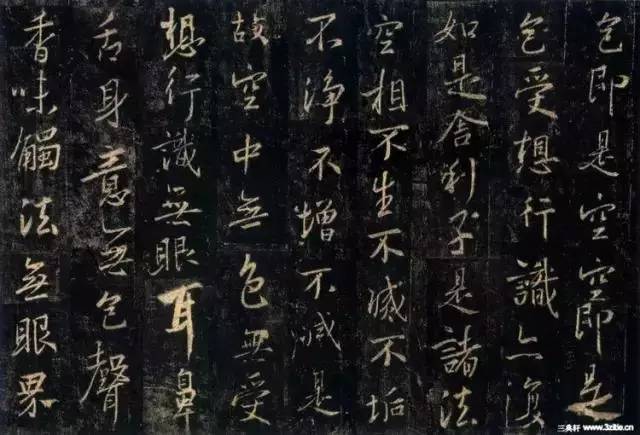 色即是空空即是
色受想行識亦復
如是舍利子是諸法
空相不生不滅不垢
不淨不增不減是
故空中無色無受
想行識無眼耳鼻
舌身意無色聲
香味觸法無眼界
三典轩 www.3zitie.cn